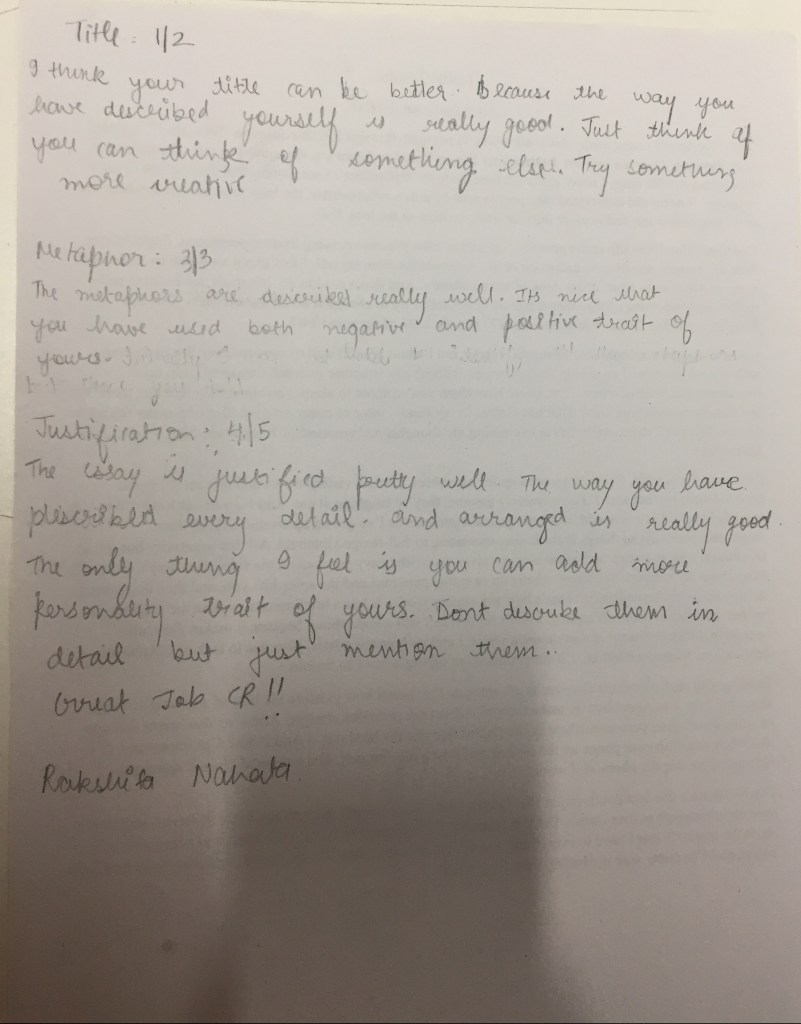 Title : 1/2
I think your title can be better. Because the way you
have described yourself is really good. Just think if
you can think of something else. Try something
more creative
Metaphor : 3/3
The metaphors are described really well. Its nice that
you have used both negative and positive trait of
yours.
Justification : 4/5
The essay is justified pretty well. The way you have
described every detail. and arranged is really good.
The only thing I feel is you can add more
personality trait of yours. Dont describe them in
detail but just mention them..
Great Job CR !!
Rakshita Nahata